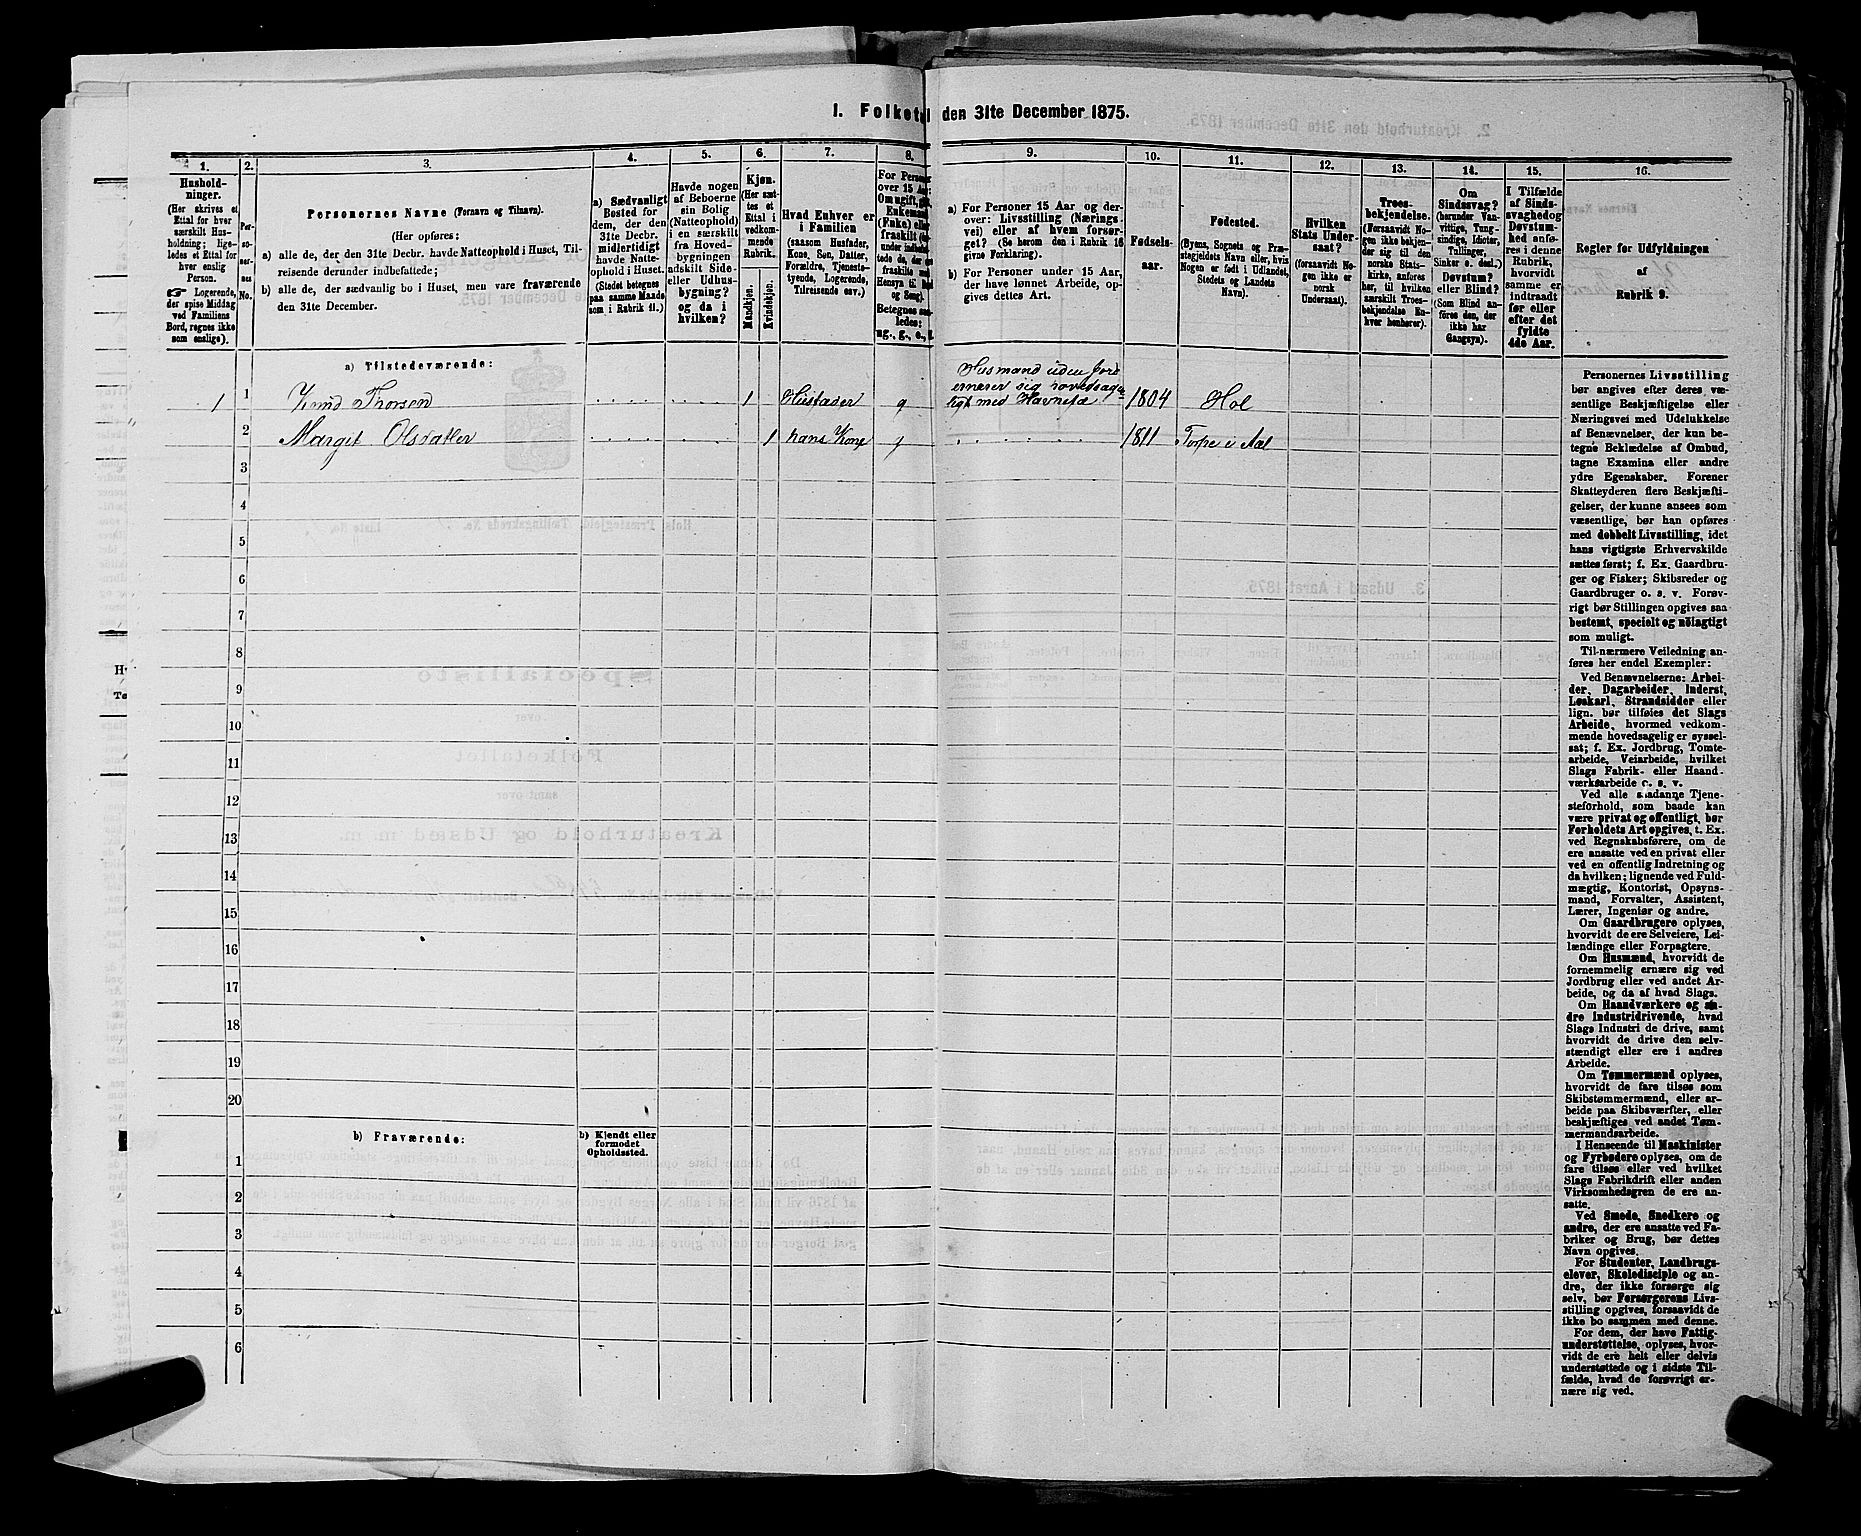 1. Folketal den 31te December 1875.
1.
2.
3.
4.
5.
6.
7.
8.
9.
10.
11.
12.
13.
14.
15.
16.
Husholdninger.
(Her skrives et
Ettal for hver
særskilt Husholdning;
ligeledes et Ettal for
hver enslig
Person.
Logerende,
der spise Middag
ved Familiens
Bord, regnes ikke
som enslige).
Personernes No.
Personernes Navne (Fornavn og Tilnavn).
(Her opføres:
a) alle de, der den 31te Decbr. havde Natteophold i Huset, Tilreisende derunder indbefattede;
b) alle de, der sædvanlig bo i Huset, men vare fraværende
den 31te December.
a) Sædvanligt
Bosted for
dem, der den
31te Decbr.
midlertidigt
havde Natteophold i Huset.
(Stedet betegnes
paa samme Maade
som i Rubrik 11.)
Havde nogen
af Beboerne
sin Bolig
(Natteophold)
i en særskilt
fra Hovedbygningen
adskilt Side-
eller Udhusbygning?
og da i
hvilken?
Kjøn.
(Her sættes et
Ettal i
vedkommende
Rubrik.
Mandkjøn.
Kvindekjøn.
Hvad Enhver er
i Familien
(saasom Husfader,
Kone, Søn, Datter,
Forældre, Tjenestetyende, Logerende,
Tilreisende osv.)
For Personer
over 15 Aar:
a) For Personer 15 Aar og derover: Livsstilling (Næringsvei) eller af hvem forsørget? (Se herom den i Rubrik 16
givne Forklaring).
b) For Personer under 15 Aar,
der have lønnet Arbeide, opgives dettes Art.
Fødselsaar.
Fødested.
(Byens, Sognets og Præstegjeldets Navn eller, hvis
Nogen er født i Udlandet,
Stedets og Landets
Navn).
Hvilken
Stats Undersaat?
(forsaavidt Nogen ikke er
norsk
Undersaat).
Troesbekjendelse.
(Forsaavidt Nogen ikke bekjender sig til
den norske Statskirke, anføres
her, til hvilken
særskilt Troesbekjendelse Enhver henhører).
Om
Sindssvag?
(herunder Vanvittige, Tungsindige, Idioter,
Tullinger,
Sinker o. desl.)
Døvstum?
eller Blind?
(Som Blind anføres den, der
ikke har
Gangsyn).
I Tilfælde
af Sindssvaghed og
Døvstumhed anføres i denne
Rubrik,
hvorvidt
samme er
indtraadt
før eller
efter det
fyldte
4de Aar.
Regler for Udfyldningen
af
Rubrik 9.
a) Tilstedeværende:
Husmand uden Jord
ernærer sig hovedsage-
ligt med Havnefæ
1 1 Knud Thorsen 1 Husfader g 1804 Hol
2 Margit Olsdatter 1 hans Kone g 1811 Torpe i Aal
3
4
5
6
7
8
9
10
11
12
13
14
15
16
17
18
19
20
b) Fraværende:
b) Kjendt eller
formodet
Opholdssted.
1
2
3
4
5
6
Personernes Livsstilling
bør angives efter deres væsentlige Beskjæftigelse eller
Næringsvei med Udelukkelse
af Benævnelser, der kun betegne Beklædelse af Ombud,
tagne Examina eller andre
ydre Egenskaber. Forener
Skatteyderen flere Beskjæftigelser, der kunne ansees som
væsentlige, bør han opføres
med dobbelt Livsstilling, idet
hans vigtigste Erhvervskilde
sættes først; f. Ex. Gaardbruger og Fisker; Skibsreder og
Gaardbruger o. s. v. Forøvrigt bør Stillingen opgives saa
bestemt, specielt og nøiagtigt
som muligt.
Til nærmere Veiledning anføres her endel Exempler:
Ved Benævnelserne: Arbeider, Dagarbeider, Inderst,
Løskarl, Strandsidder eller
lign. bør tilføies det Slags
Arbeide, hvormed vedkommende hovedsagelig er sysselsat; f. Ex. Jordbrug, Tomtearbeide, Veiarbeide, hvilket
Slags Fabrik- eller Haandværksarbeide o. s. v.
Ved alle saadanne Tjenesteforhold, som baade kan
være privat og offentligt, bør
Forholdets Art opgives, t. Ex.
ved Regnskabsførere, om de
ere ansatte ved en privat eller
ved en offentlig Indretning og
da hvilken; lignende ved Fuldmægtig, Kontorist, Opsynsmand, Forvalter, Assistent,
Lærer, Ingeniør og andre.
Om Gaardbrugere oplyses,
hvorvidt de ere Selveiere, Leilændinge eller Forpagtere.
Om Husmænd, hvorvidt de
fornemmelig ernære sig ved
Jordbrug eller ved andet Arbeide, og da af hvad Slags.
Om Haandværkere og andre Industridrivende, hvad
Slags Industri de drive, samt
hvorvidt de drive den selvstændigt eller ere i andres
Arbeide.
Om Tømmermænd oplyses,
hvorvidt de fare tilsøs som
Skibstømmermænd, eller arbeide paa Skibsværfter, eller
beskjæftiges ved andet Tømmermandsarbeide.
I Henseende til Maskinister
og Fyrbødere oplyses, om de
fare tilsøs eller ved hvilket
Slags Fabrikdrift eller anden
Virksomhedsgren de ere ansatte.
Ved Smede, Snedkere og
andre, der ere ansatte ved Fabriker og Brug, bør dettes
Navn opgives.
For Studenter, Landbrugselever, Skoledisciple og andre, der ikke forsørge sig
selv, bør Forsørgerens Livsstilling opgives, forsaavidt de
ikke bo sammen med denne.
For dem, der have Fattigunderstøttelse, oplyses, hvorvidt de ere helt eller delvis
understøttede og i sidste Tilfælde, hvad de forøvrigt ernære sig ved.